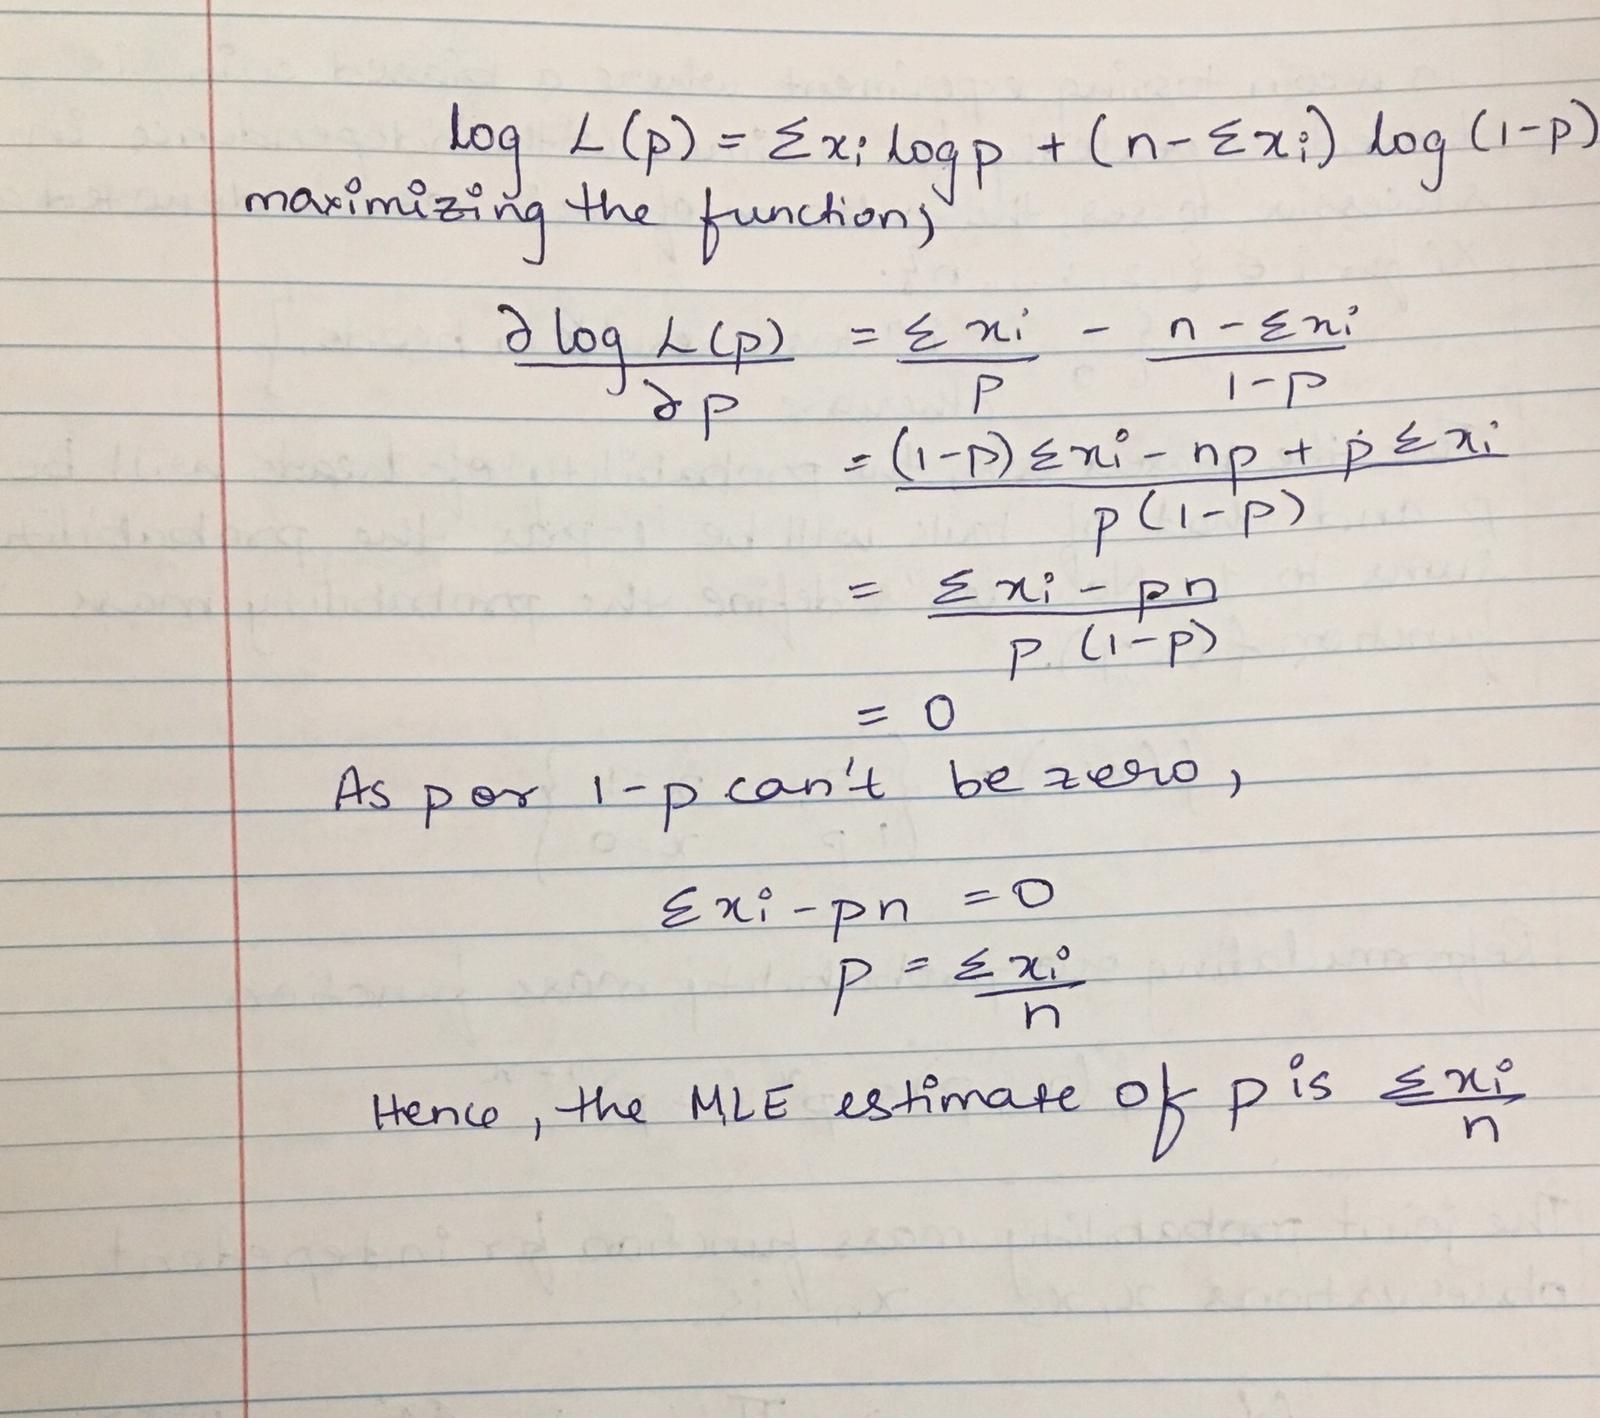 log L(p) = Σxi log p + (n-Σxi) log (1-p)
maximizing the function,
∂ log L(p) / ∂p = Σxi / p - n-Σxi / 1-p
= (1-p)Σxi - np + pΣxi / p(1-p)
= Σxi - pn / p (1-p)
= 0
As p or 1-p can't be zero,
Σxi - pn = 0
p = Σxi / n
Hence, the MLE estimate of p is Σxi / n